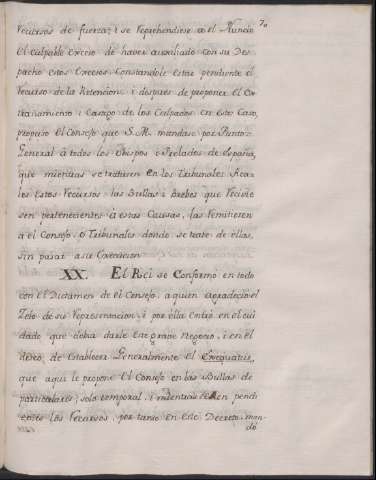 70
recursos de fuerza; i se reprehendiese a el Nuncio
el culpable exceso de haver auxiliado con su Des-
pacho estos Excesos Constandole estar pendiente el
recurso de la Retencion; i despues de proponer el Ex-
trañamiento i Castigo de los Culpados en este Caso,
propuso el Consejo que S. M. mandase por Punto
General â todos los Obispos i Prelados de España,
que mientras se tratasen en los Tribunales Rea-
les estos Recursos las Bullas i Brebes que recivie
sen pertenecientes â estas Causas, las remitiesen
a el Consejo, ô Tribunales donde se trate de ellas,
sin pasar a su Execucion
XX. El Rei se Conformó en todo
con el Dictamen de el Consejo, a quien agradeciò el
Zelo de su Representacion; i por ella entrò en el cui
dado que debia darle tan grave Negocio, i en el
deseo de establecer Generalmente el Exequatur,
que aqui le propone el Consejo en las Bullas de
particulares; solo temporal, i mientras esten pendi
entes los recursos, por tanto en este Decreto man-
dó